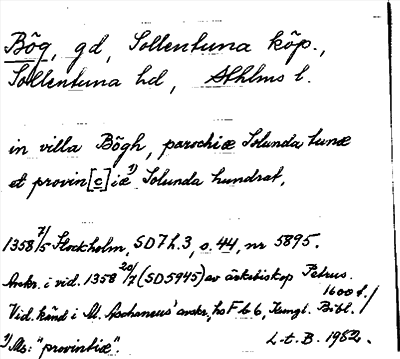 Bög, gd, Sollentuna köp.,
Sollentuna hd, Sthlms l.
in villa Bögh, parochiæ Solunda tunæ
et provin[c]iæ 1) Solunda hundrat,
1358 7/5 Stockholm, SD 7 h. 3, s. 44, nr 5895.
Avskr. i vid. 1358 20/7 (SD 5945) av ärkebiskop Petrus.
1600 t./
Vid. känd i M. Aschaneus' avskr., hs F b 6, Kungl. Bibl.
1) Ms: "provintiæ".
L.t.B. 1952.